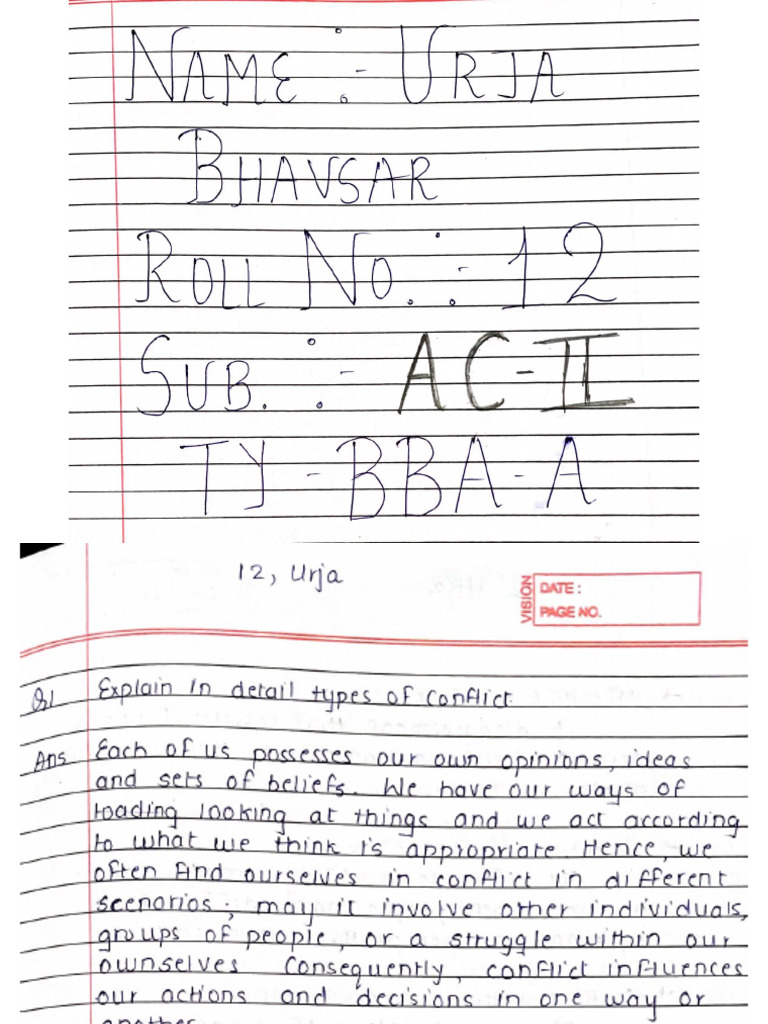 NAME :- URJA
BHAVSAR
ROLL NO. :- 12
SUB. :- AC-II
TY - BBA - A
12, Urja
VISION
DATE :
PAGE NO.
Q1 Explain in detail types of conflict.
Ans Each of us possesses our own opinions, ideas
and sets of beliefs. We have our ways of
loading looking at things and we act according
to what we think is appropriate. Hence, we
often find ourselves in conflict in different
scenarios, may it involve other individuals,
groups of people, or a struggle within our
ownselves. Consequently, conflict influences
our actions and decisions in one way or
another.